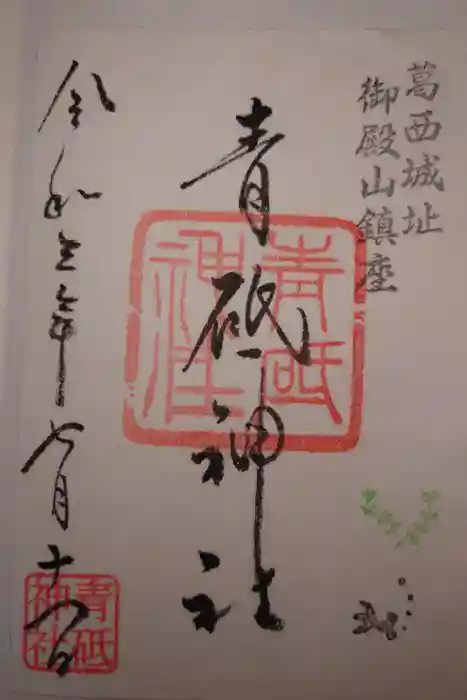 葛西城址
御殿山鎮座
青砥神社
青砥
神社
令和三年七月十八日
青砥
神社